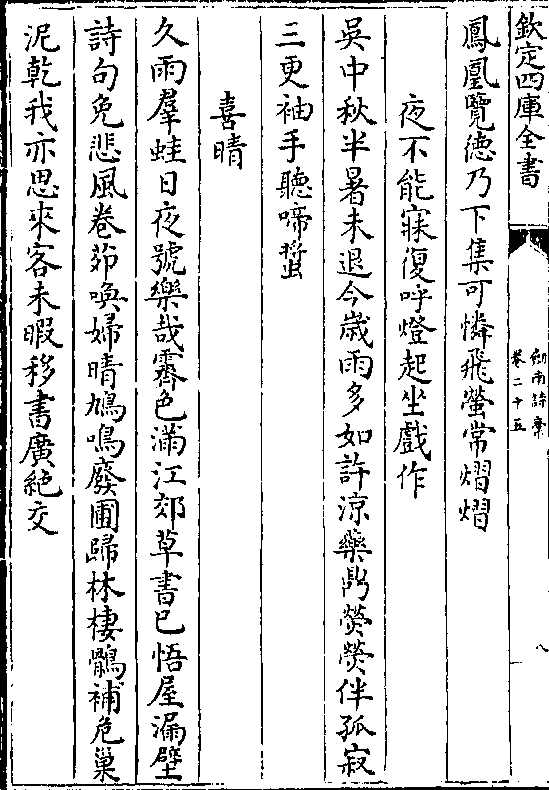 欽定四庫全書
劒南詩藁
卷二十五
八
鳳凰覽德乃下集可憐飛螢常熠熠
夜不能寐復呼燈起坐戲作
吳中秋半暑未退今歲雨多如許涼藥鼎熒熒伴孤寂
三更袖手聽啼螿
喜晴
久雨羣蛙日夜號樂哉霽色滿江郊草書已悟屋漏壁
詩句免悲風卷茆喚婦晴鳩鳴廢圃歸林棲鶻補危巢
泥乾我亦思來客未暇移書廣絶交